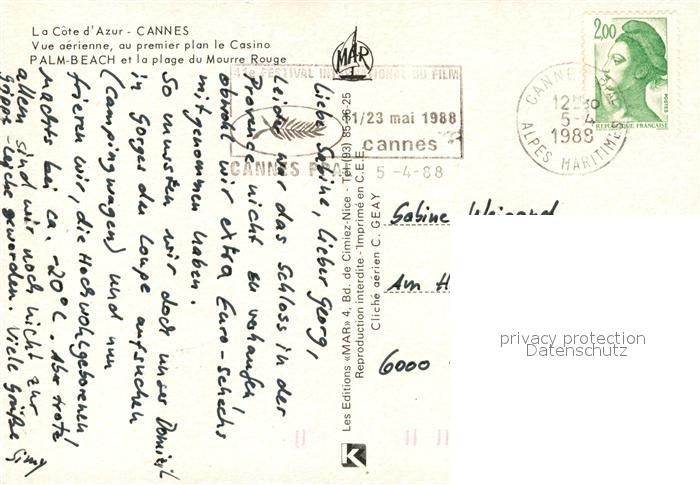 La Côte d'Azur - CANNES
Vue aérienne, au premier plan le Casino
PALM-BEACH et la plage du Mourre Rouge
MAR
41e FESTIVAL INTERNATIONAL DU FILM
11/23 mai 1988
cannes
CANNES
5-4-88
2,00
POSTES
REPUBLIQUE FRANÇAISE
CANNES
12H30
5-4
1988
ALPES MARITIMES
Liebe Sabine, lieber Georg,
Leider war das Schloss in der
Provence nicht zu verkaufen!
obwohl wir extra Euro-schecks
mitgenommen haben.
So mussten wir doch unser Domizil
in Gorges du Loupe aufsuchen
(Campingwagen) und nun
frieren wir, die Hochwohlgeborenen!
nachts bei ca. -20°C. Aber trotz
allem sind wir noch nicht zur
geworden. Viele Grüße
Les Editions «MAR» 4, Bd. de Cimiez-Nice - Tél. (93) 85-36-25
Reproduction interdite - Imprimé en C.E.E.
Cliché aérien C. GEAY
K
Sabine
Am H
6000
privacy protection
Datenschutz